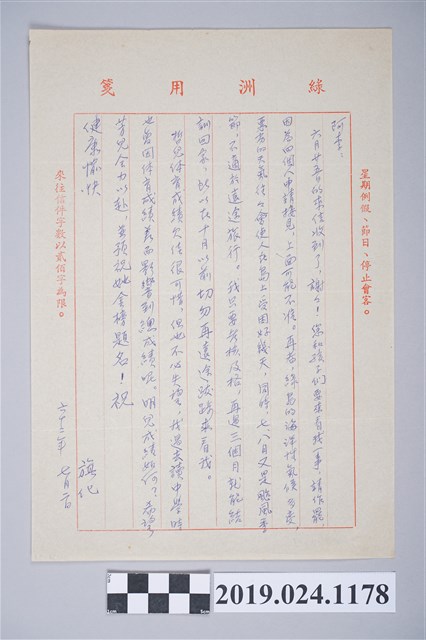 綠洲用箋
星期例假、節日、停止會客。
阿李：
六月廿五日的來信收到了，謝謝！您和孩子們要來看我事，請作罷
因為四個人申請接見，上面可能不准。再者，綠島的海洋性氣候多變，
惡劣的天氣往々會使人在島上受困好幾天，同時，七、八月又是颱風季
節，不適於遠途旅行。我只要考核及格，再過三個月就能結
訓回家，所以在十月以前切勿再遠途跋涉來看我。
哲兒體育成績欠佳很可惜，但也不必失望，我過去讀中學時
也曾因體育成績差而影響到總成績呢。明兒成績如何？希望
芳兒全力以赴，並預祝她金榜題名！祝
健康愉快
旗化
六十二年七月二日
來往信件字數以貳佰字為限。
2019.024.1178